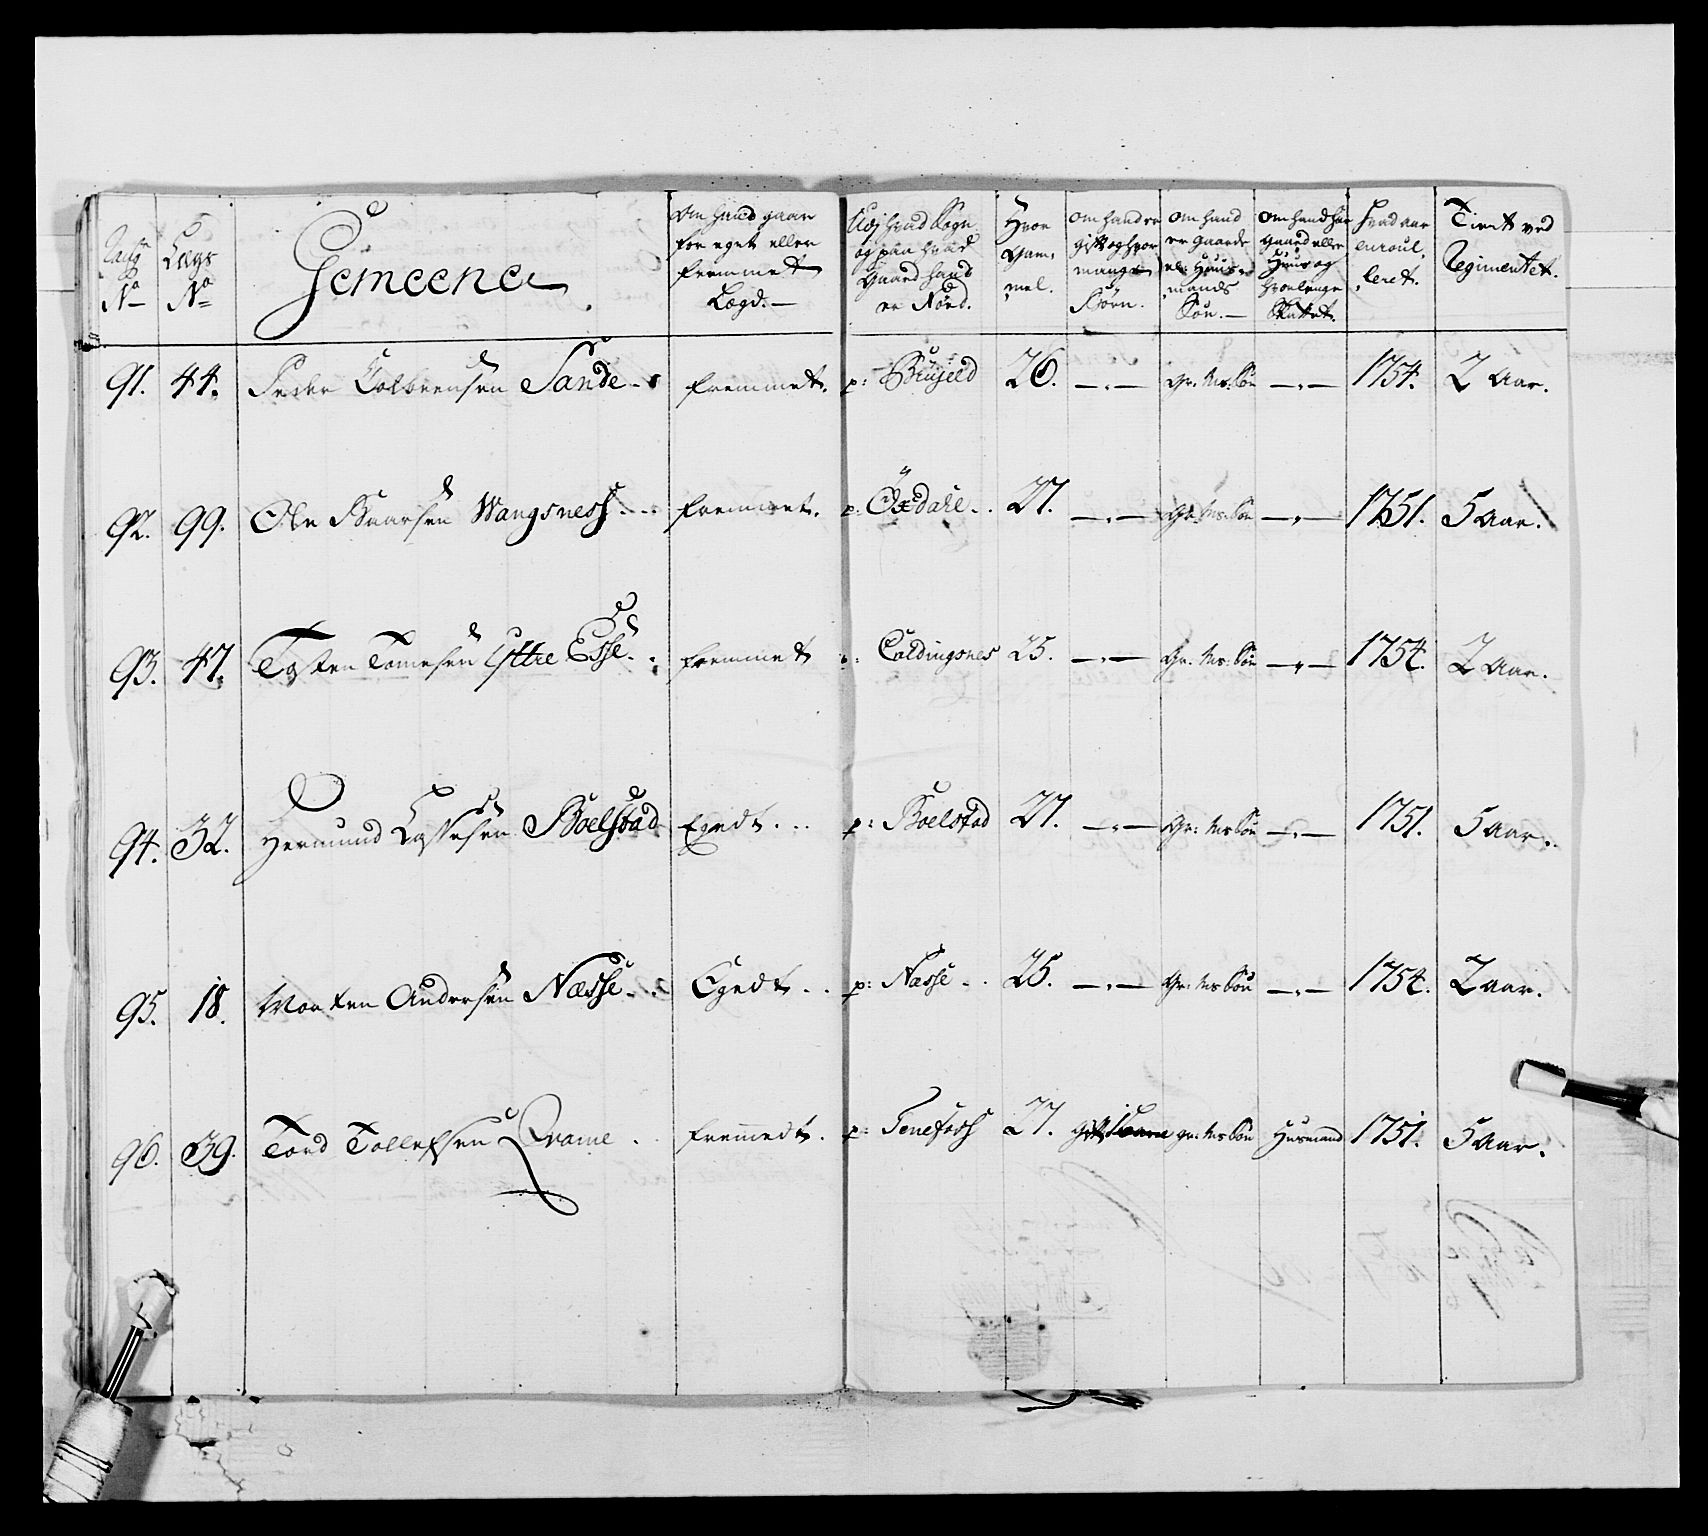 Rang
No
Lægs
No
Gemeener
Om hand gaar
for eget eller
fremmet
Lægd.
Udj hvad Sogn
og paa hvad
Gaard hand
er Nørd.
Hvor
Gam-
mel.
Om hand er
gift og hvor
mange
Børn.
Om hand
er Gaards
el: Huus-
mands
Søn.
Om hand har
Gaard eller
Huus og
hvor længe
Skattet.
Hvad aar
enroul-
leret.
Tient ved
Regimentet.
91. 44. Peder Colbeensen Sande fremmet. p: 26. Gr: Ms: Søn 1754. 2 Aar.
92. 99. Ole Baarsen Wangsness fremmet. p: Öxdahle 27. Gr: Ms: Søn 1751. 5 Aar.
93. 47. Tosten Tomesen Yttre Esse fremmet Coldingsnes 25. Gr: Ms: Søn 1754. 2 Aar.
94. 32. Hermund Lassesen Boelstad Egedt p: Boelstad 27. Gr: Ms: Søn 1751. 5 Aar.
95. 18. Morten Andersen Næsse Egedt p: Næsse 25. Gr: Ms: Søn 1754. 2 Aar.
96. 39. Tord Tollefsen Qvame fremmedt. p: Tenefoss 27. gr: Ms: Søn Husmand 1751. 5 Aar.